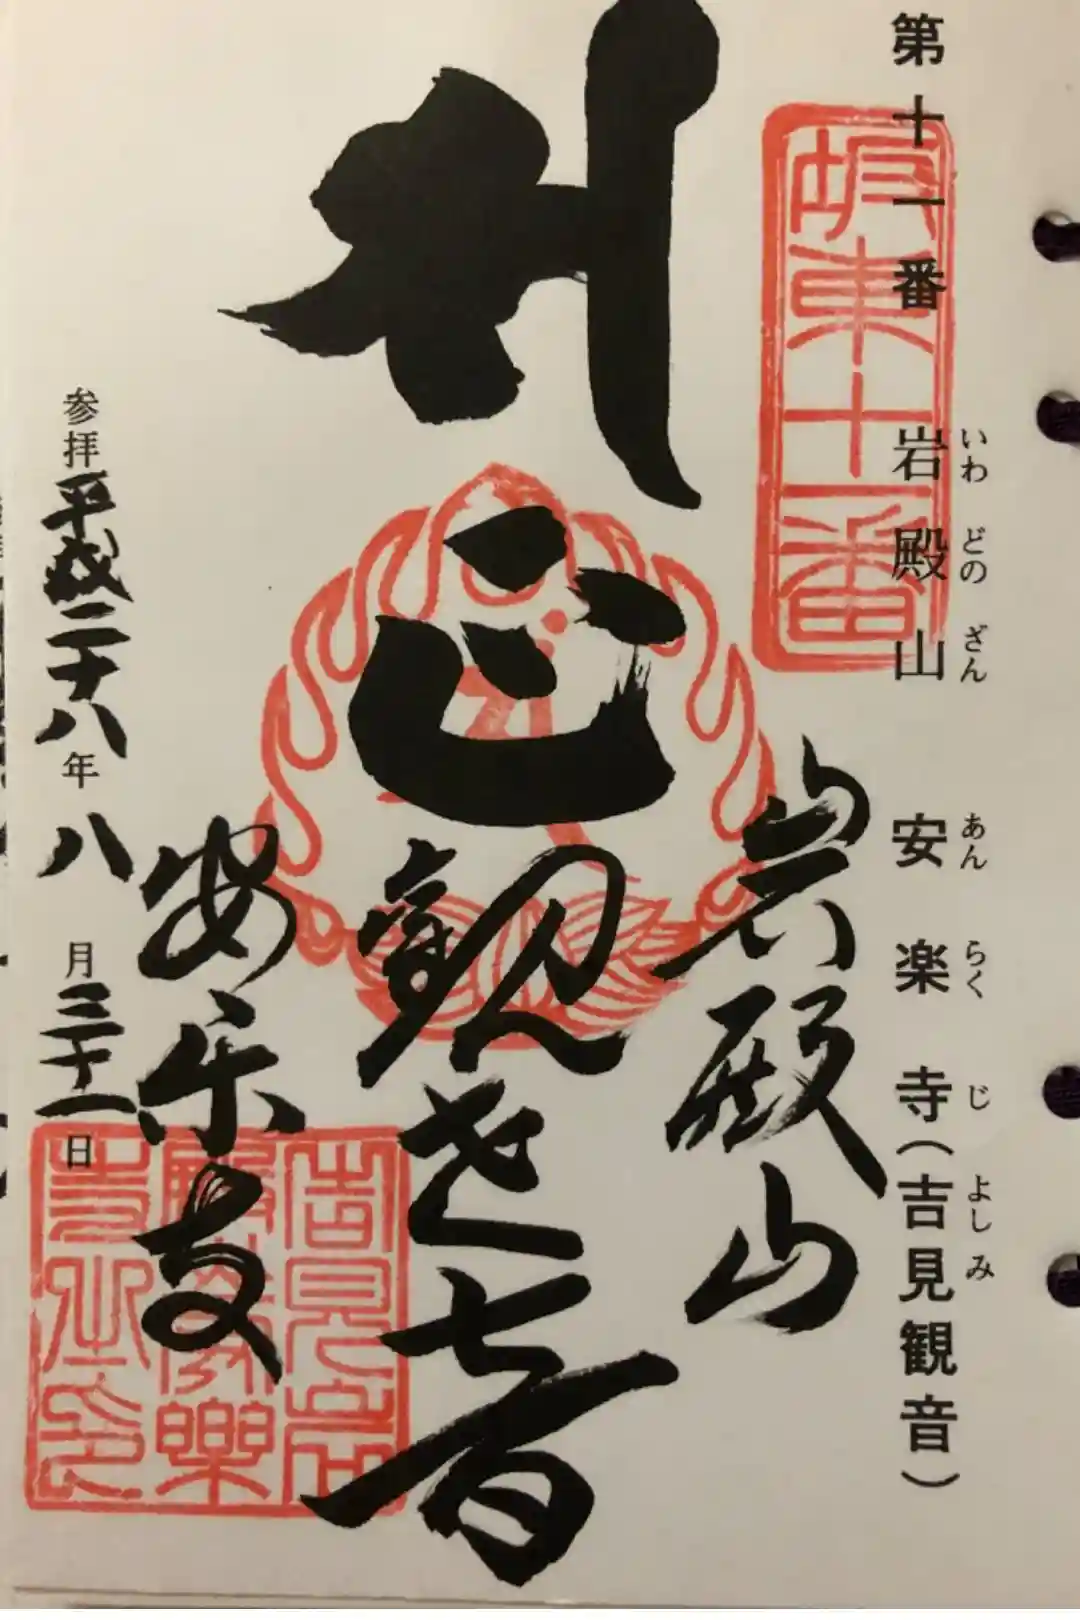 第十一番 岩殿山 安楽寺(吉見観音)
いわどのざん あんらくじ よしみ
坂東十一番
岩殿山
正観世音
安楽寺
参拝平成二十八年八月三十一日